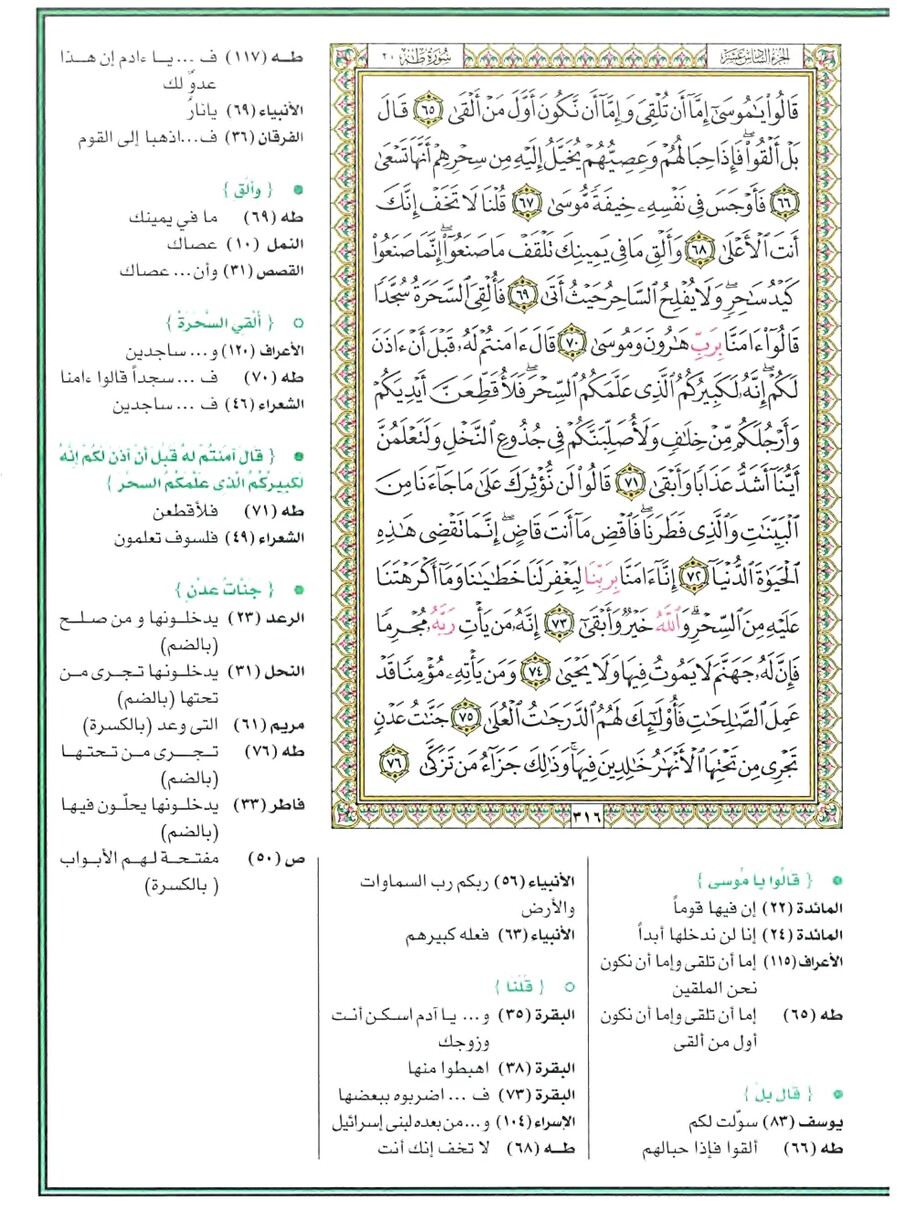 الجزء السادس عشر
سورة طه ٢٠
قَالُوا۟ يَٰمُوسَىٰٓ إِمَّآ أَن تُلْقِىَ وَإِمَّآ أَن نَّكُونَ أَوَّلَ مَنْ أَلْقَىٰ ٦٥ قَالَ
بَلْ أَلْقُوا۟ۖ فَإِذَا حِبَالُهُمْ وَعِصِيُّهُمْ يُخَيَّلُ إِلَيْهِ مِن سِحْرِهِمْ أَنَّهَا تَسْعَىٰ
٦٦ فَأَوْجَسَ فِى نَفْسِهِۦ خِيفَةً مُّوسَىٰ ٦٧ قُلْنَا لَا تَخَفْ إِنَّكَ
أَنتَ ٱلْأَعْلَىٰ ٦٨ وَأَلْقِ مَا فِى يَمِينِكَ تَلْقَفْ مَا صَنَعُوٓا۟ۖ إِنَّمَا صَنَعُوا۟
كَيْدُ سَٰحِرٍۖ وَلَا يُفْلِحُ ٱلسَّاحِرُ حَيْثُ أَتَىٰ ٦٩ فَأُلْقِىَ ٱلسَّحَرَةُ سُجَّدًا
قَالُوٓا۟ ءَامَنَّا بِرَبِّ هَٰرُونَ وَمُوسَىٰ ٧٠ قَالَ ءَامَنتُمْ لَهُۥ قَبْلَ أَنْ ءَاذَنَ
لَكُمْۖ إِنَّهُۥ لَكَبِيرُكُمُ ٱلَّذِى عَلَّمَكُمُ ٱلسِّحْرَۖ فَلَأُقَطِّعَنَّ أَيْدِيَكُمْ
وَأَرْجُلَكُم مِّنْ خِلَٰفٍ وَلَأُصَلِّبَنَّكُمْ فِى جُذُوعِ ٱلنَّخْلِ وَلَتَعْلَمُنَّ
أَيُّنَآ أَشَدُّ عَذَابًا وَأَبْقَىٰ ٧١ قَالُوا۟ لَن نُّؤْثِرَكَ عَلَىٰ مَا جَآءَنَا مِنَ
ٱلْبَيِّنَٰتِ وَٱلَّذِى فَطَرَنَاۖ فَٱقْضِ مَآ أَنتَ قَاضٍۖ إِنَّمَا تَقْضِى هَٰذِهِ
ٱلْحَيَوٰةَ ٱلدُّنْيَآ ٧٢ إِنَّآ ءَامَنَّا بِرَبِّنَا لِيَغْفِرَ لَنَا خَطَٰيَٰنَا وَمَآ أَكْرَهْتَنَا
عَلَيْهِ مِنَ ٱلسِّحْرِۗ وَٱللَّهُ خَيْرٌ وَأَبْقَىٰٓ ٧٣ إِنَّهُۥ مَن يَأْتِ رَبَّهُۥ مُجْرِمًا
فَإِنَّ لَهُۥ جَهَنَّمَ لَا يَمُوتُ فِيهَا وَلَا يَحْيَىٰ ٧٤ وَمَن يَأْتِهِۦ مُؤْمِنًا قَدْ
عَمِلَ ٱلصَّٰلِحَٰتِ فَأُو۟لَٰٓئِكَ لَهُمُ ٱلدَّرَجَٰتُ ٱلْعُلَىٰ ٧٥ جَنَّٰتُ عَدْنٍ
تَجْرِى مِن تَحْتِهَا ٱلْأَنْهَٰرُ خَٰلِدِينَ فِيهَاۚ وَذَٰلِكَ جَزَآءُ مَن تَزَكَّىٰ ٧٦
٣١٦
• { قالُوا يا مُوسى }
المائدة (٢٢) إن فيها قوماً
المائدة (٢٤) إنا لن ندخلها أبداً
الأعراف (١١٥) إما أن تلقى وإما أن نكون
نحن الملقين
طه (٦٥) إما أن تلقى وإما أن نكون
أول من ألقى
• { قال بلْ }
يوسف (٨٣) سوّلت لكم
طه (٦٦) ألقوا فإذا حبالهم
الأنبياء (٥٦) ربكم رب السماوات
والأرض
الأنبياء (٦٣) فعله كبيرهم
○ { قُلْنا }
البقرة (٣٥) و... يا آدم اسكن أنت
وزوجك
البقرة (٣٨) اهبطوا منها
البقرة (٧٣) ف ... اضربوه ببعضها
الإسراء (١٠٤) و...من بعده لبنى إسرائيل
طـه (٦٨) لا تخف إنك أنت
طـه (١١٧) ف ... يـا ءادم إن هـذا
عدوٌ لك
الأنبياء (٦٩) يانارُ
الفرقان (٣٦) ف...اذهبا إلى القوم
• { وألْق }
طه (٦٩) ما في يمينك
النمل (١٠) عصاك
القصص (٣١) وأن... عصاك
○ { ألْقي السَّحَرةُ }
الأعراف (١٢٠) و... ساجدين
طه (٧٠) ف ...سجداً قالوا ءامنا
الشعراء (٤٦) ف ... ساجدين
• { قال آمنتُمْ لهُ قبْل أنْ آذن لكُمْ إنّهُ
لكبيركُمُ الّذى علّمكُمُ السحر }
طه (٧١) فلأقطعن
الشعراء (٤٩) فلسوف تعلمون
• { جنّاتُ عدْنٍ }
الرعد (٢٣) يدخلـونها و من صلـح
(بالضم)
النحل (٣١) يدخلـونها تجرى مـن
تحتها (بالضم)
مريم (٦١) التى وعد (بالكسرة)
طه (٧٦) تـجـرى مـن تـحتـهـا
(بالضم)
فاطر (٣٣) يدخلـونها يحلّـون فيها
(بالضم)
ص (٥٠) مفتحـة لـهـم الأبـواب
( بالكسرة)